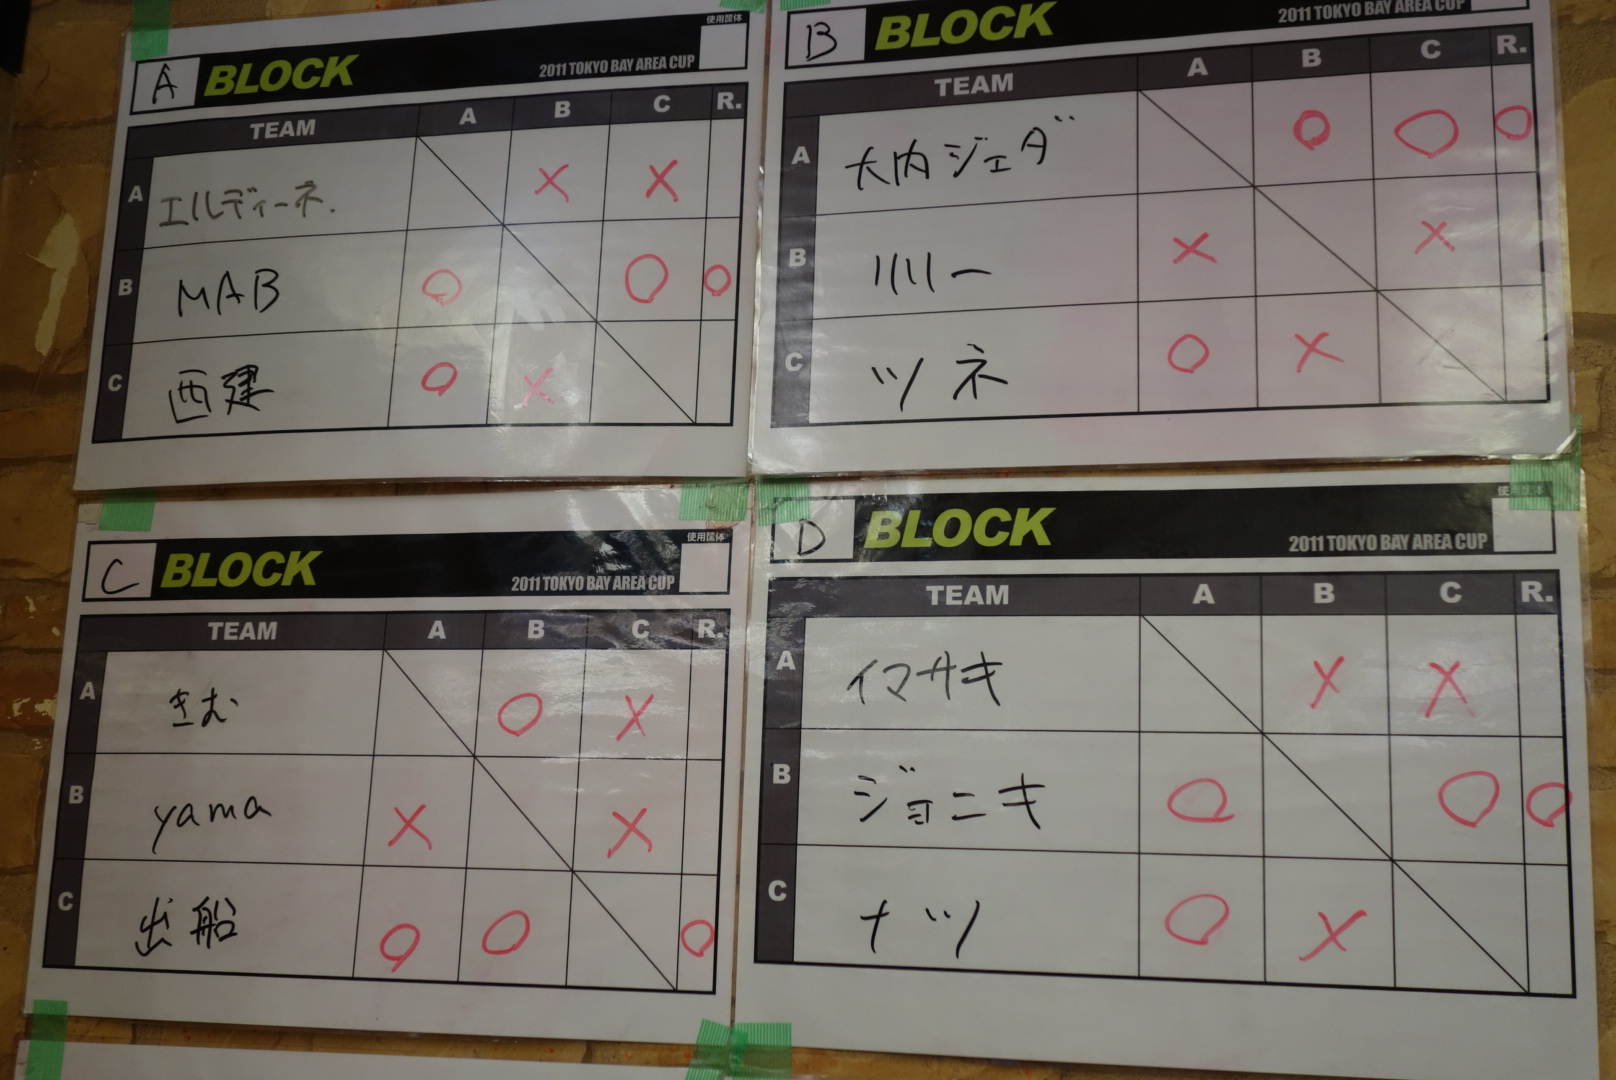 使用筐体
A BLOCK 2011 TOKYO BAY AREA CUP
TEAM A B C R.
A エルディーネ. × ×
B MAB ○ ○ ○
C 西建 ○ ×
B BLOCK 2011 TOKYO BAY AREA CUP
TEAM A B C R.
A 大内ジェダ ○ ○ ○
B リリー × ×
C ツネ ○ ×
使用筐体
C BLOCK 2011 TOKYO BAY AREA CUP
TEAM A B C R.
A きむ ○ ×
B yama × ×
C 出船 ○ ○ ○
使用筐体
D BLOCK 2011 TOKYO BAY AREA CUP
TEAM A B C R.
A イマサキ × ×
B ジョニキ ○ ○ ○
C ナツ ○ ×